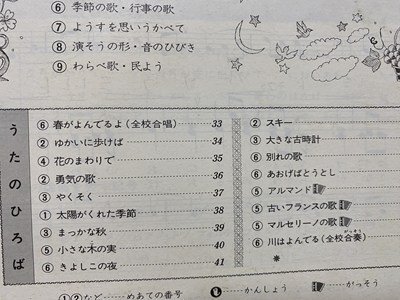 ⑥ 季節の歌・行事の歌
⑦ ようすを思いうかべて
⑧ 演そうの形・音のひびき
⑨ わらべ歌・民よう
うたのひろば
⑥ 春がよんでるよ(全校合唱) 33
② ゆかいに歩けば 34
④ 花のまわりで 35
② 勇気の歌 36
③ やくそく 37
① 太陽がくれた季節 38
③ まっかな秋 39
⑤ 小さな木の実 40
⑥ きよしこの夜 41
② スキー
③ 大きな古時計
⑥ 別れの歌
⑥ あおげばとうとし
⑤ アルマンド
⑤ 古いフランスの歌
⑤ マルセリーノの歌
⑥ 川はよんでる(全校合奏)
*
①②など……めあての番号
……かんしょう
……がっそう